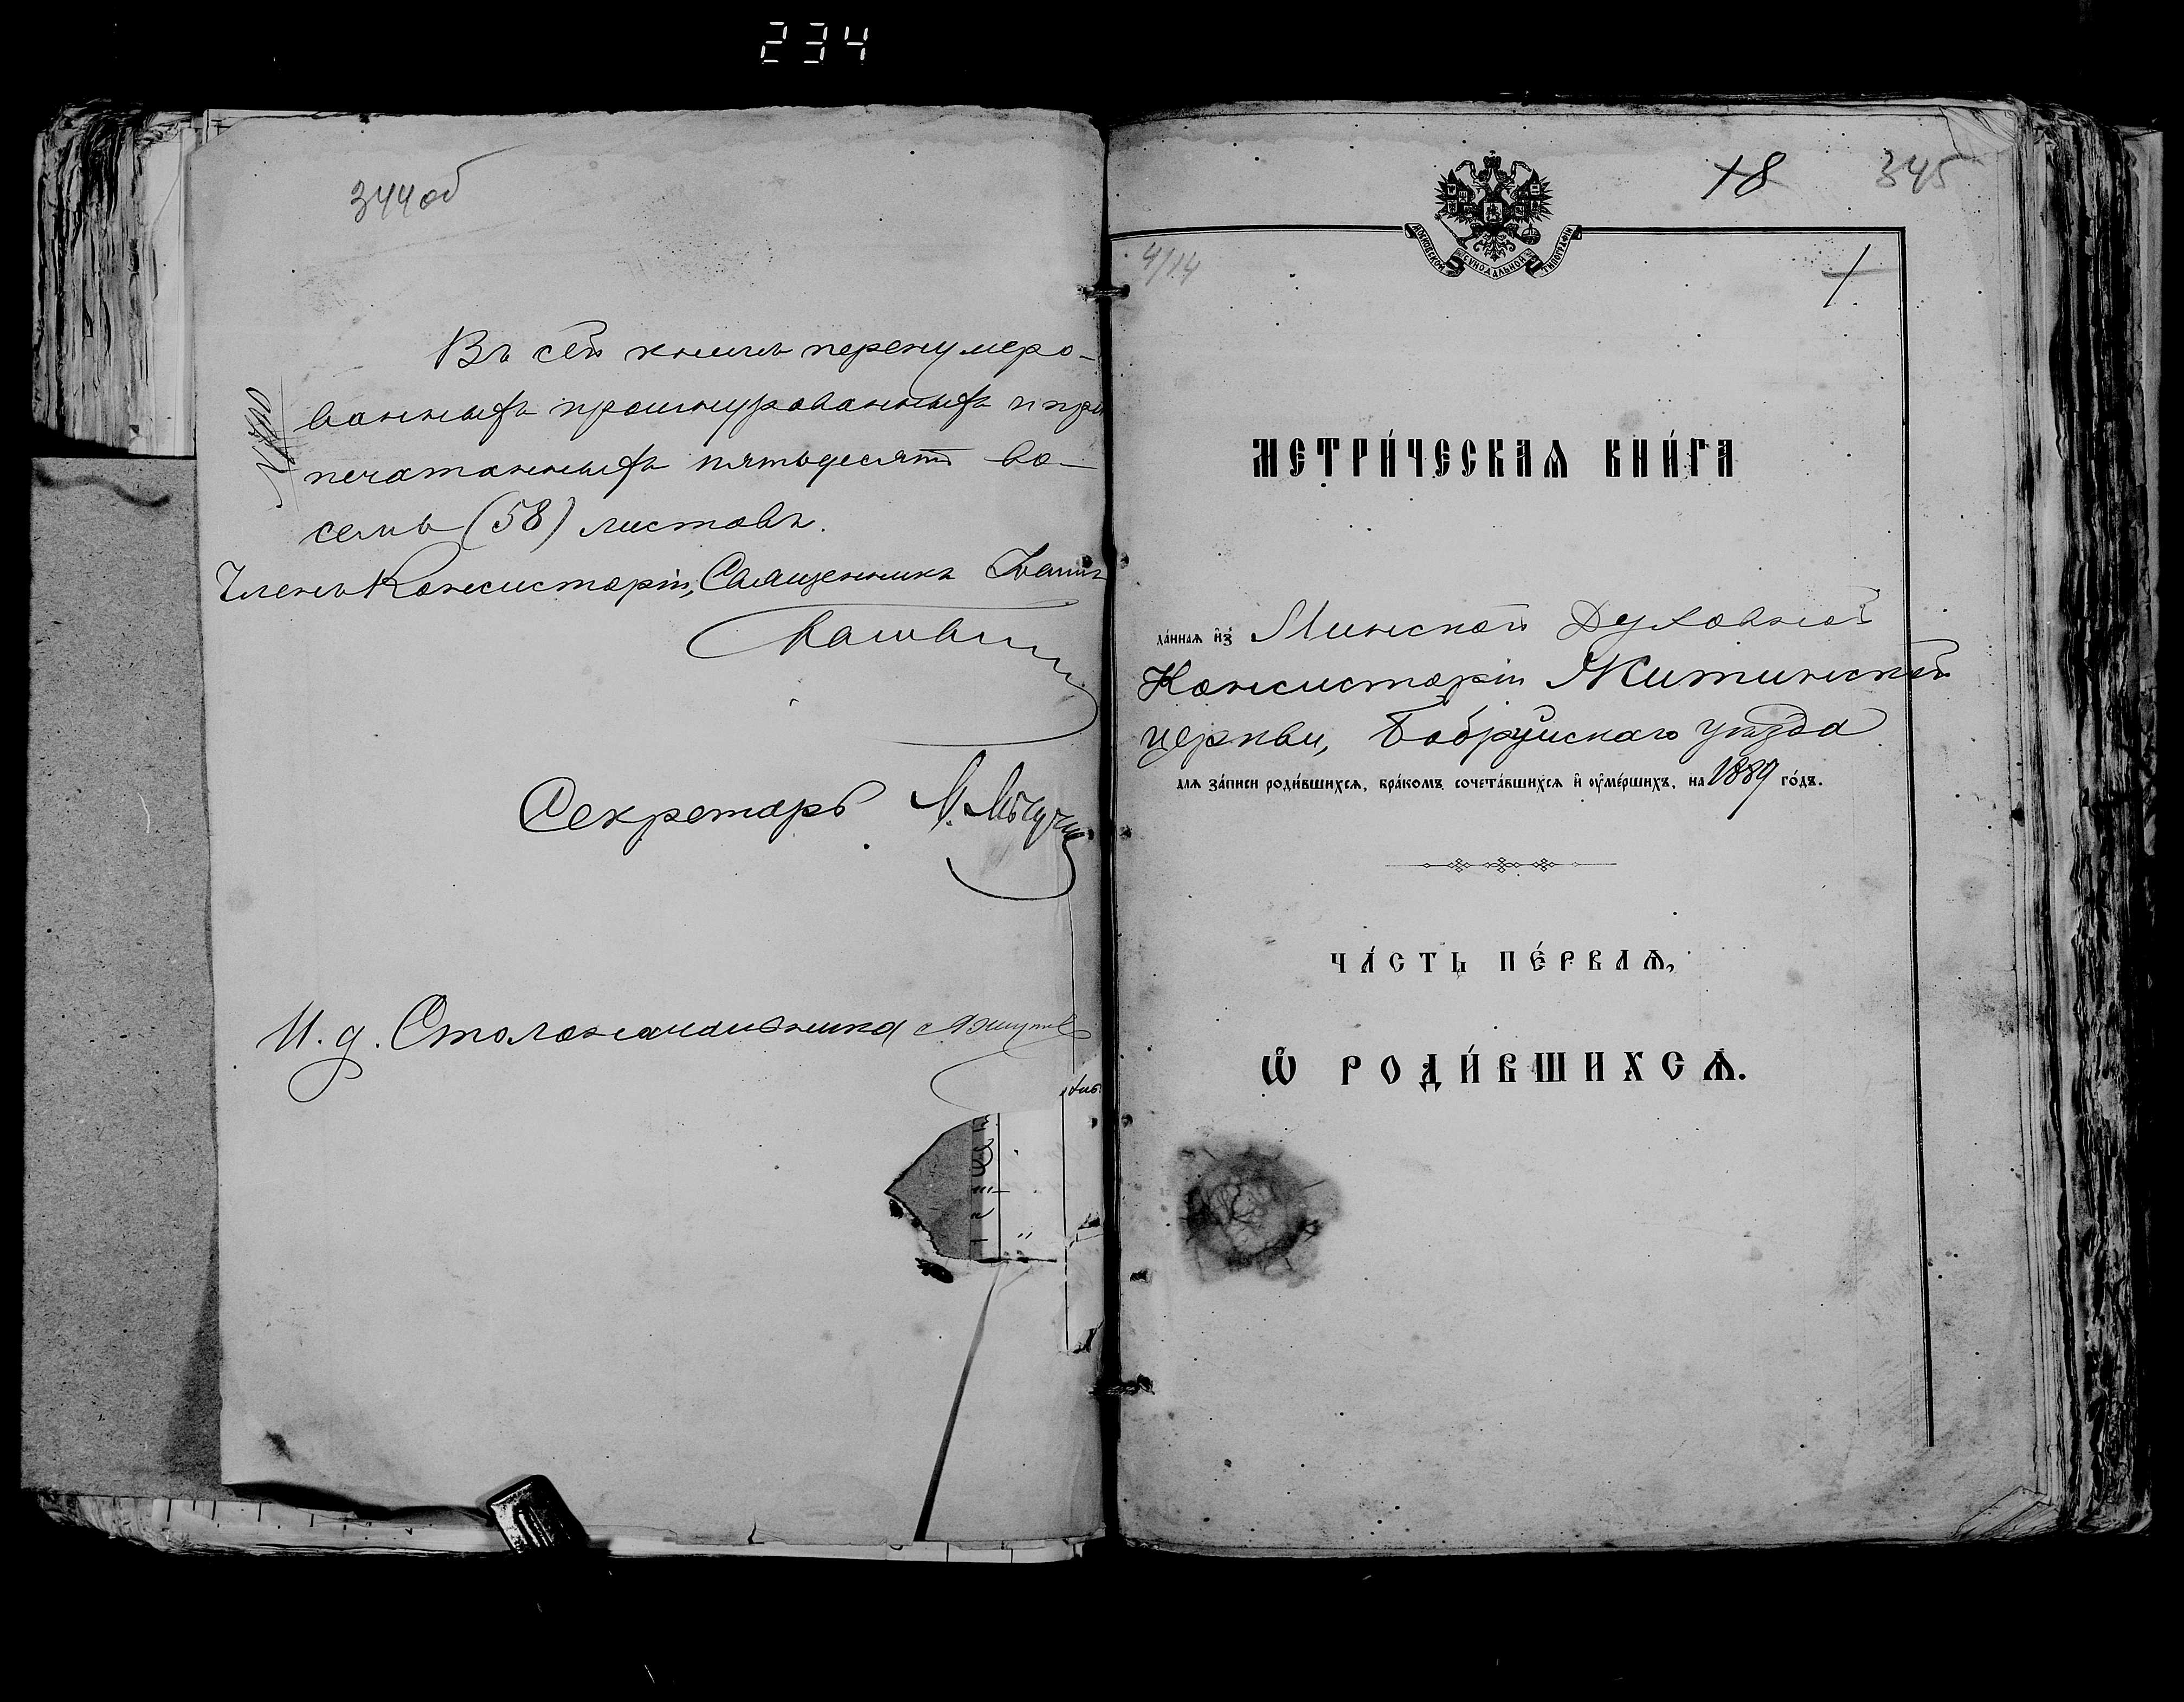 234
344об
Въ сей книгѣ перенумеро-
ванныхъ прошнурованныхъ и при
печатанныхъ пятьдесятъ во-
семь (58) листовъ.
Членъ Консисторіи, Священникъ Іоаннъ
Секретарь
И. д. Столоначальника
18 345
МОСКОВСКОЙ СѴНОДАЛЬНОЙ ТИПОГРАФІИ
4/14
1.
МЕТРИ́ЧЕСКАѦ КНИ́ГА
да́ннаѧ и҆з̾ Минской Духовной
Консисторіи Житинской
церкви, Бобруйскаго уѣзда
для за́писи роди́вшихсѧ, бра́комъ сочета́вшихсѧ и҆ оу҆ме́ршихъ, на 1889 го́дъ.
ЧА́СТЬ ПЕ́РВАѦ,
Ѽ РОДИ́ВШИХСѦ.